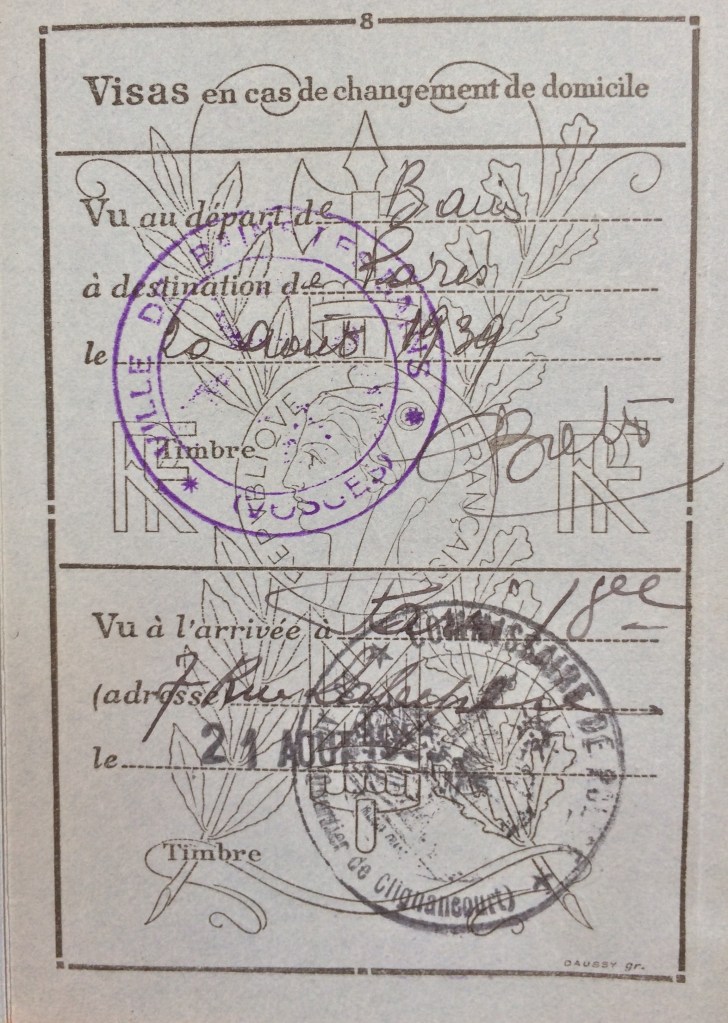 8
Visas en cas de changement de domicile
Vu au départ de Bains
à destination de Paris
le 20 août 1939
Timbre
VILLE DE BAINS LES BAINS
(VOSGES)
RF
RÉPUBLIQUE FRANÇAISE
RF
Vu à l'arrivée à Paris 18ee
(adresse 7 Rue
le 21 AOUT
Timbre
COMMISSAIRE DE POLICE
de Clignancourt)
GAUSSY gr.